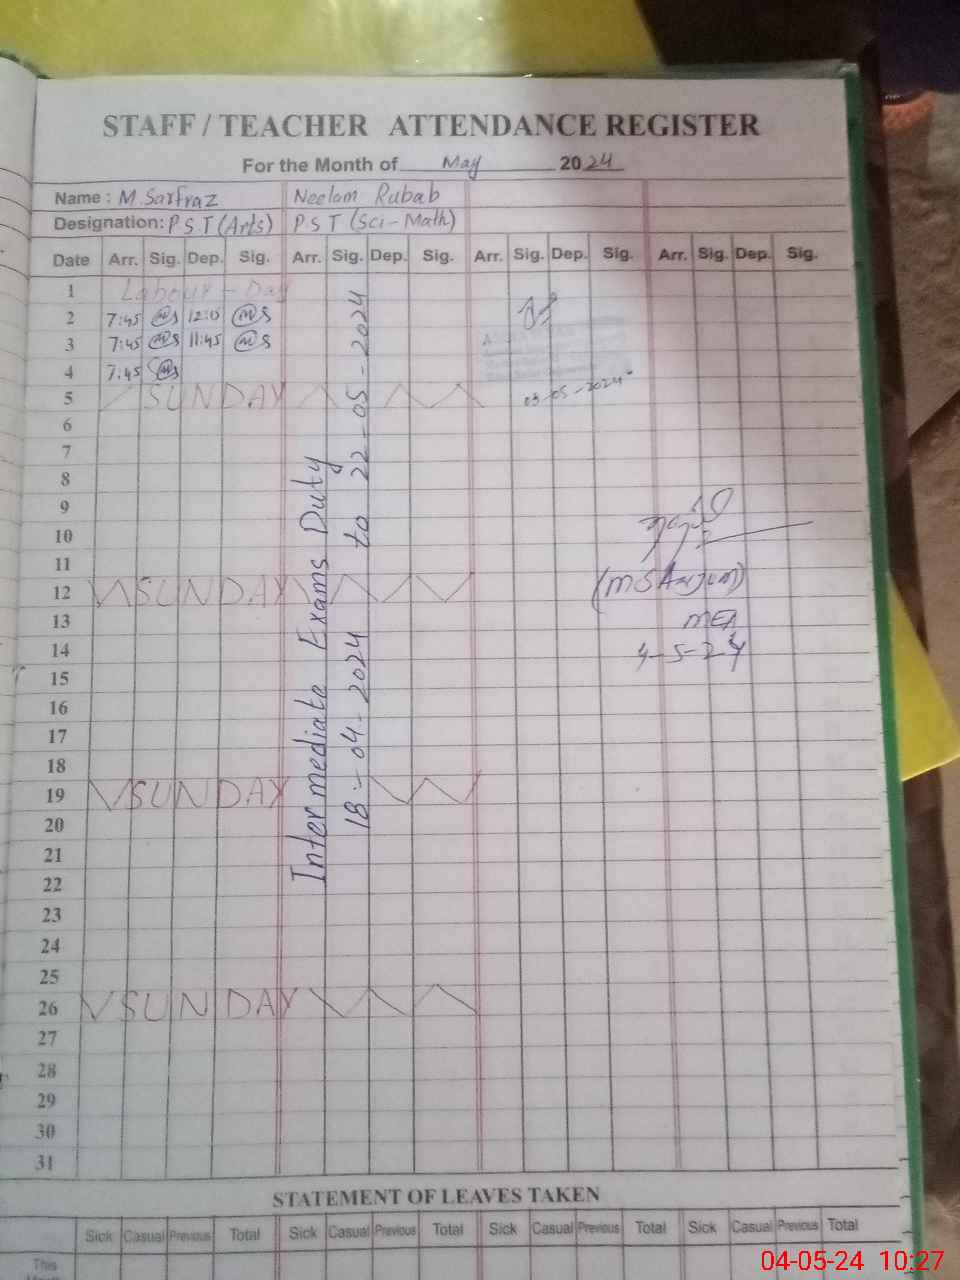 STAFF / TEACHER ATTENDANCE REGISTER
For the Month of May 2024
Name : M Sarfraz Neelam Rubab
Designation: P S T (Arts) P S T (Sci-Math)
Date Arr. Sig. Dep. Sig. Arr. Sig. Dep. Sig. Arr. Sig. Dep. Sig. Arr. Sig. Dep. Sig.
1 Labour - Day
2 7:45 12:15
3 7:45 11:45
4 7:45
5 SUNDAY
03-05-2024
6
7
8
9
10
11
12 SUNDAY
(M S Anjum)
13 MEA
14 4-5-24
15
16
17
18
19 SUNDAY
20
21
22
23
24
25
26 SUNDAY
27
28
29
30
31
Intermediate Exams Duty
18-04-2024 to 22-05-2024
STATEMENT OF LEAVES TAKEN
Sick Casual Previous Total Sick Casual Previous Total Sick Casual Previous Total Sick Casual Previous Total
This
04-05-24 10:27